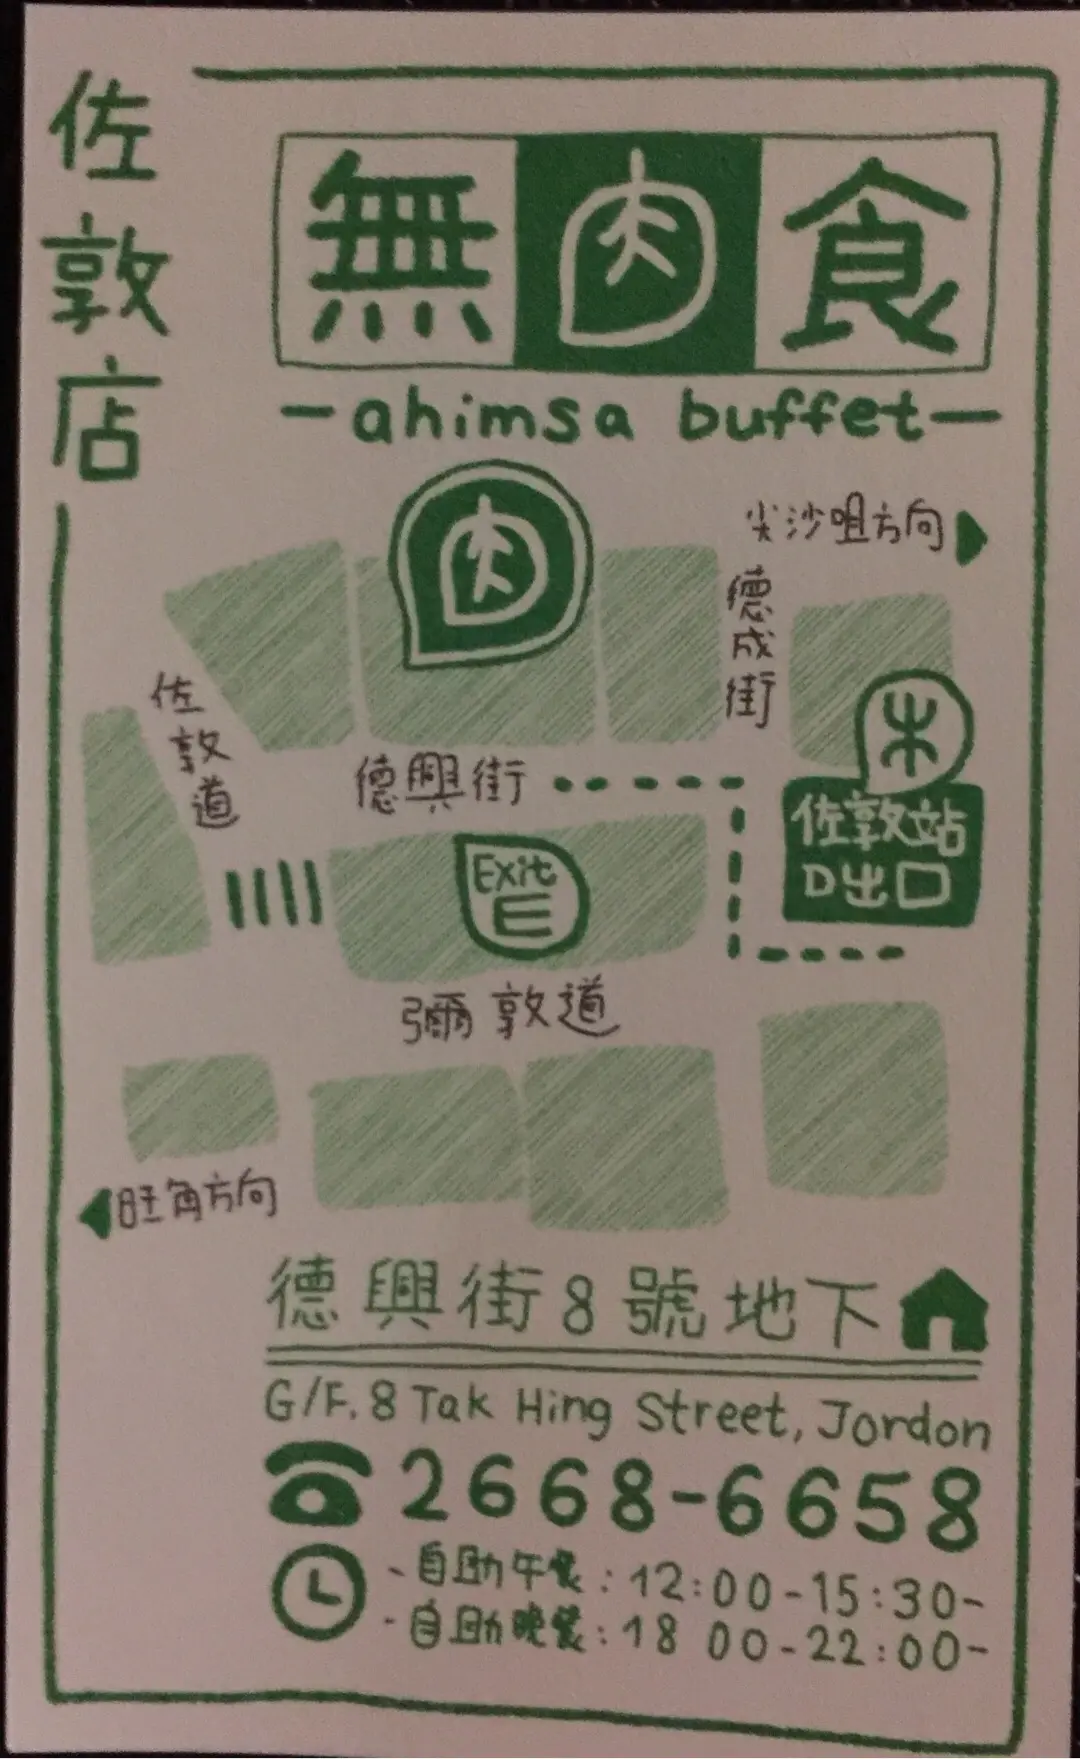 佐敦店
無肉食
-ahimsa buffet-
肉
尖沙咀方向
德成街
佐敦道
德興街
佐敦站
D出口
Exit
E
彌敦道
旺角方向
德興街8號地下
G/F. 8 Tak Hing Street, Jordon
2668-6658
-自助午餐:12:00-15:30-
-自助晚餐:18 00-22:00-